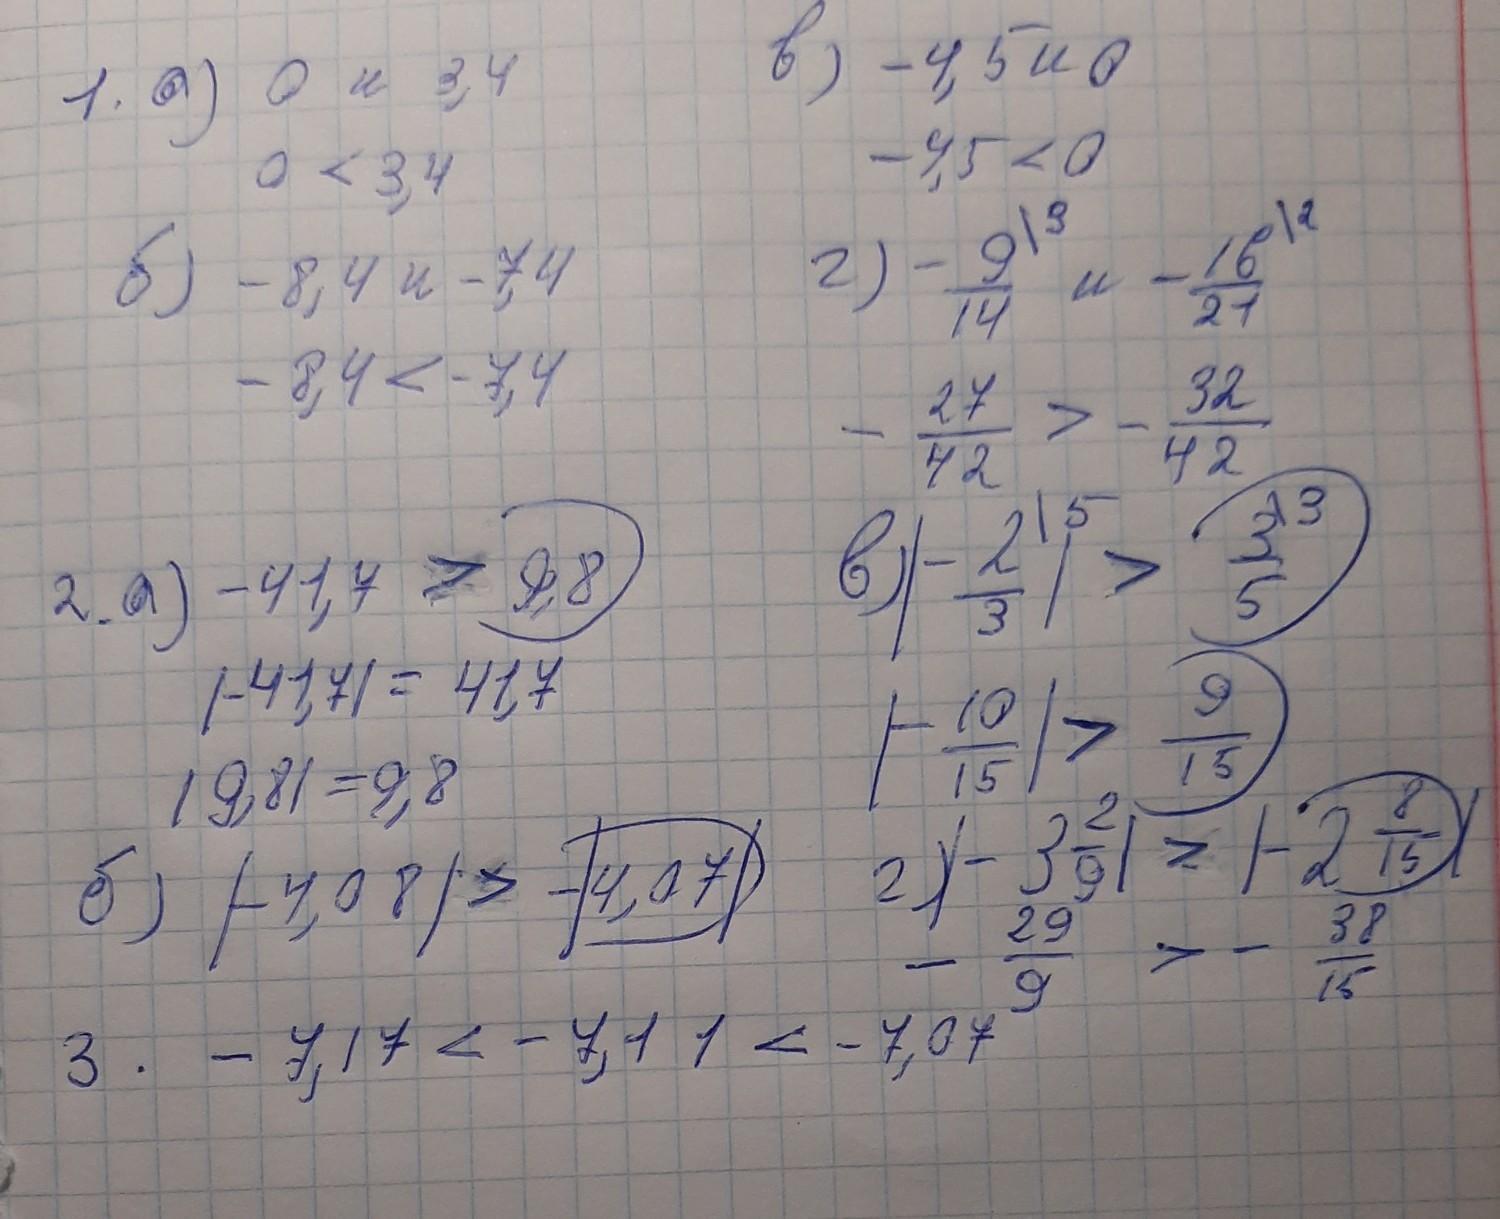 1. а) 0 и 3,4
0 < 3,4
б) -8,4 и -7,4
-8,4 < -7,4
в) -4,5 и 0
-4,5 < 0
г) - 9\3/14 и - 16\2/21
- 27/42 > - 32/42
2. а) -41,7 > 9,8
|-41,7| = 41,7
|9,8| = 9,8
б) |-4,08| > -|4,07|
в) |- 2\5/3| > 3\3/5
|- 10/15| > 9/15
г) |- 3 2/9| > |- 2 8/15|
- 29/9 > - 38/15
3. -7,17 < -7,11 < -7,07